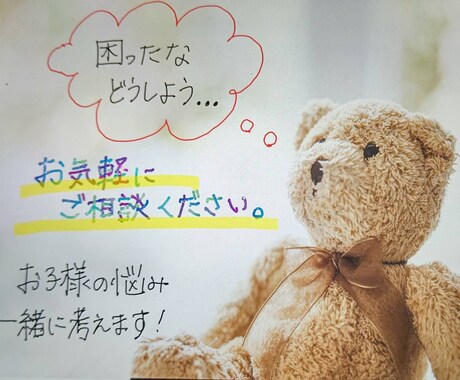 困ったな
どうしよう...
お気軽に
ご相談ください。
お子様の悩み
一緒に考えます!